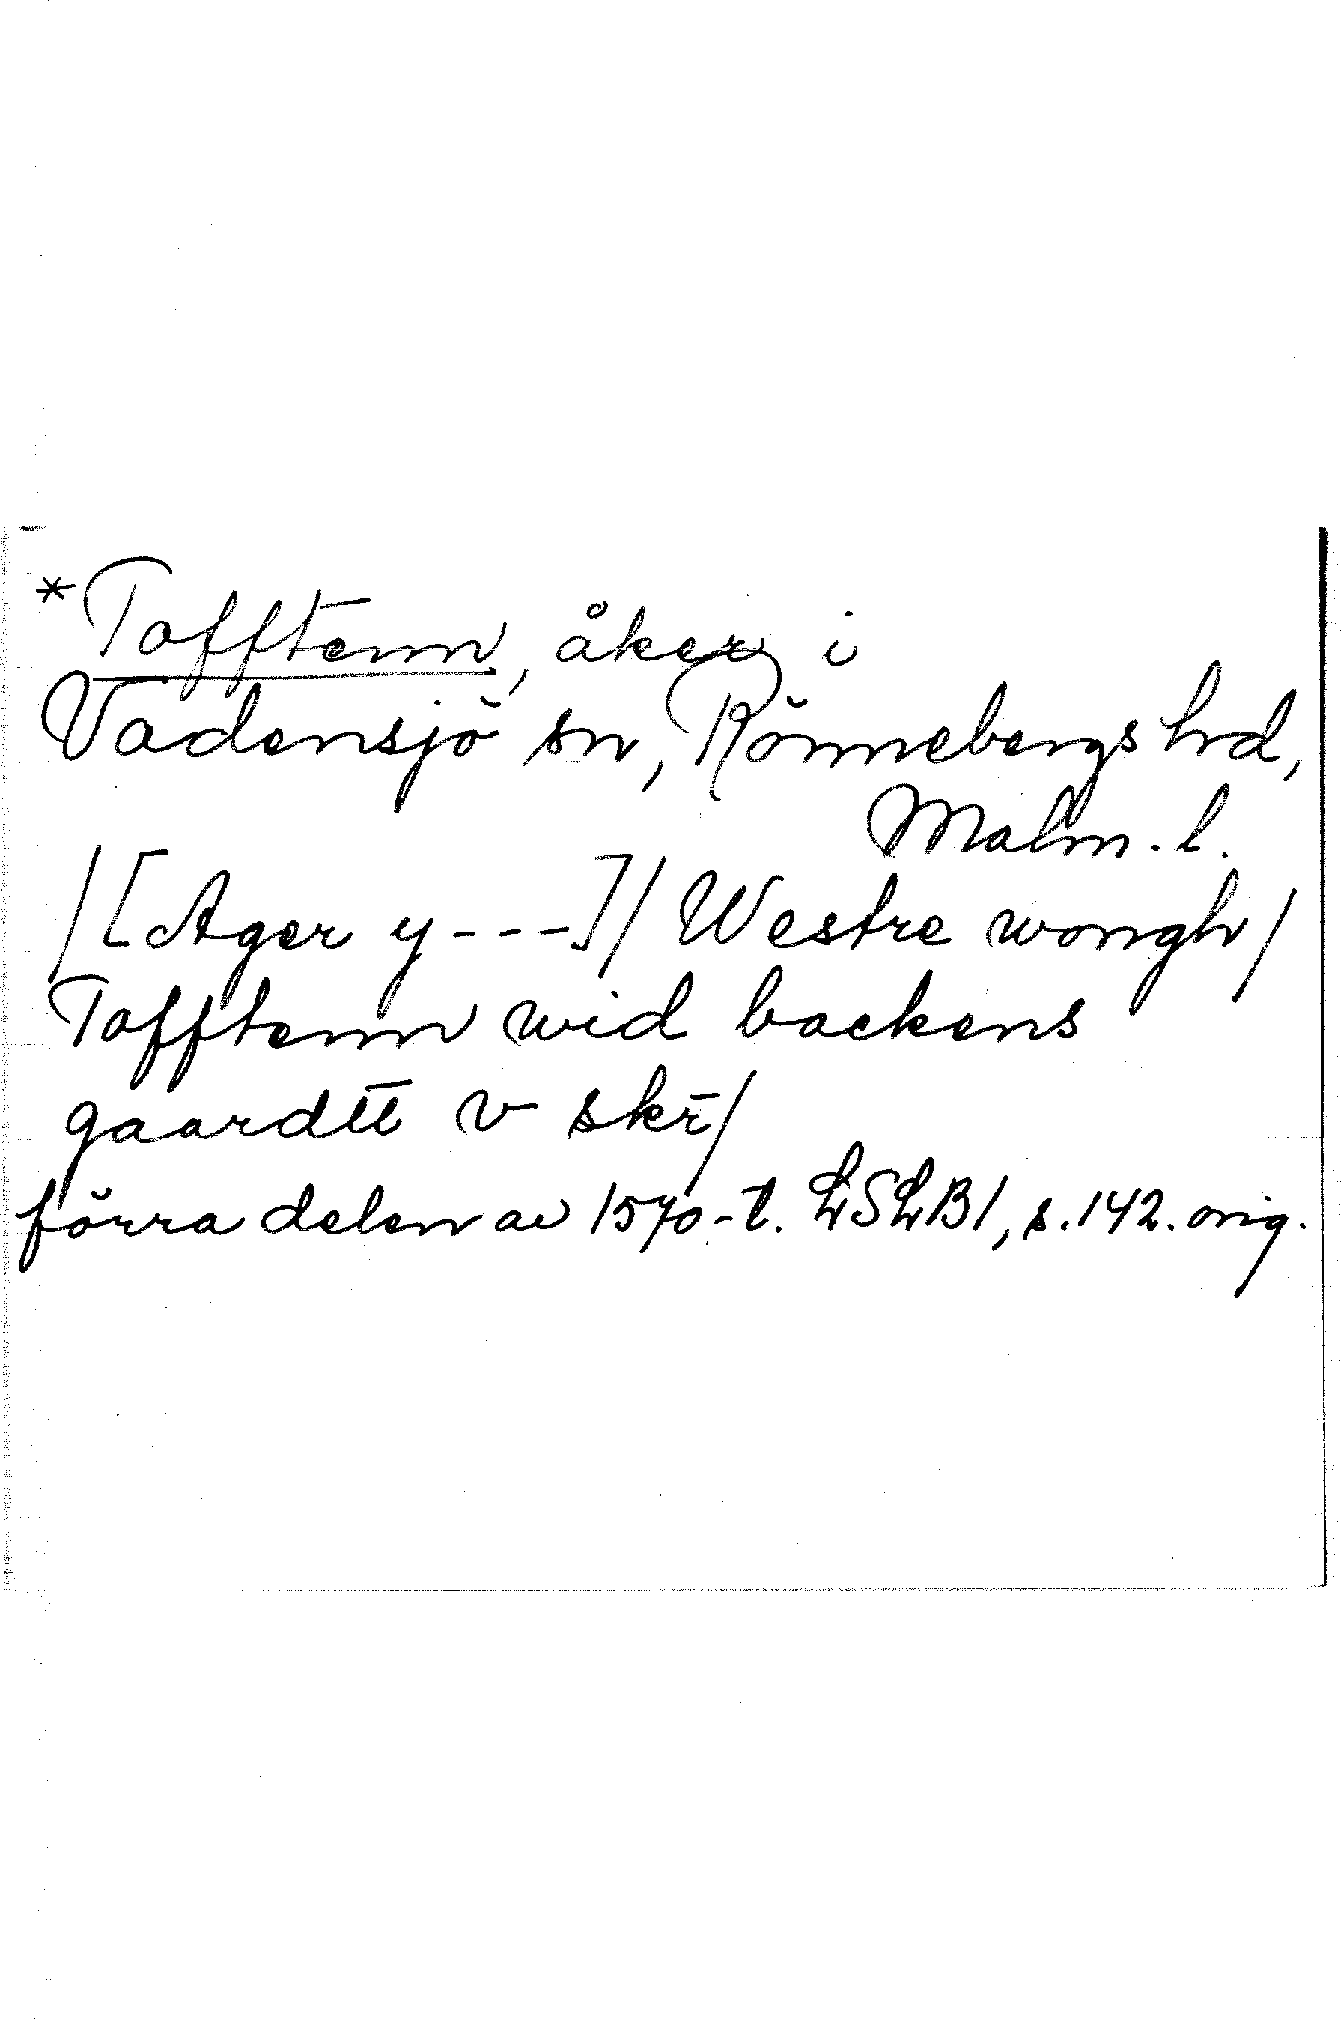 *Tofftenn, åker i
Vadensjö sn, Rönnebergs hd,
Malm. l.
/[Ager y---]/ Westre wongh/
Tofftenn wid backens
gaardtt v skr̄/
förra delen av 1570-t. LSLB1, s. 142. orig.